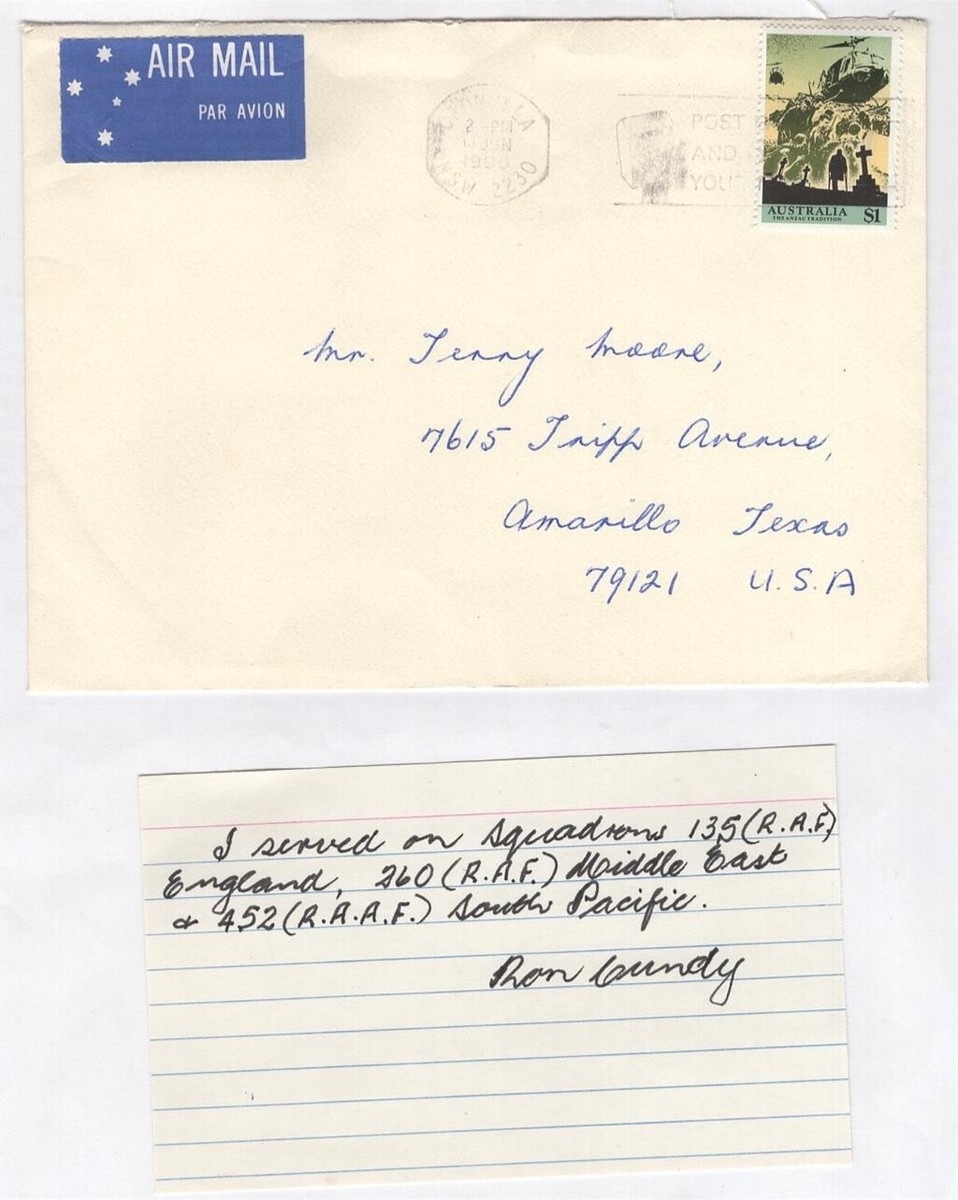 AIR MAIL
PAR AVION
2-PM
JUN
1990
NSW 2230
POST
AND
YOUR
AUSTRALIA $1
THE ANZAC TRADITION
Mr. Terry Moore,
7615 Tripp Avenue,
Amarillo Texas
79121 U.S.A
I served on Squadrons 135 (R.A.F.)
England, 260 (R.A.F.) Middle East
& 452 (R.A.A.F.) South Pacific.
Ron Cundy